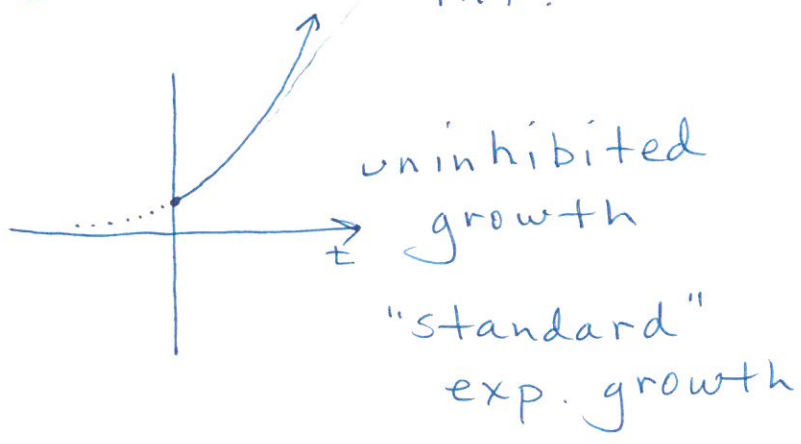 t
uninhibited
growth
"standard"
exp. growth